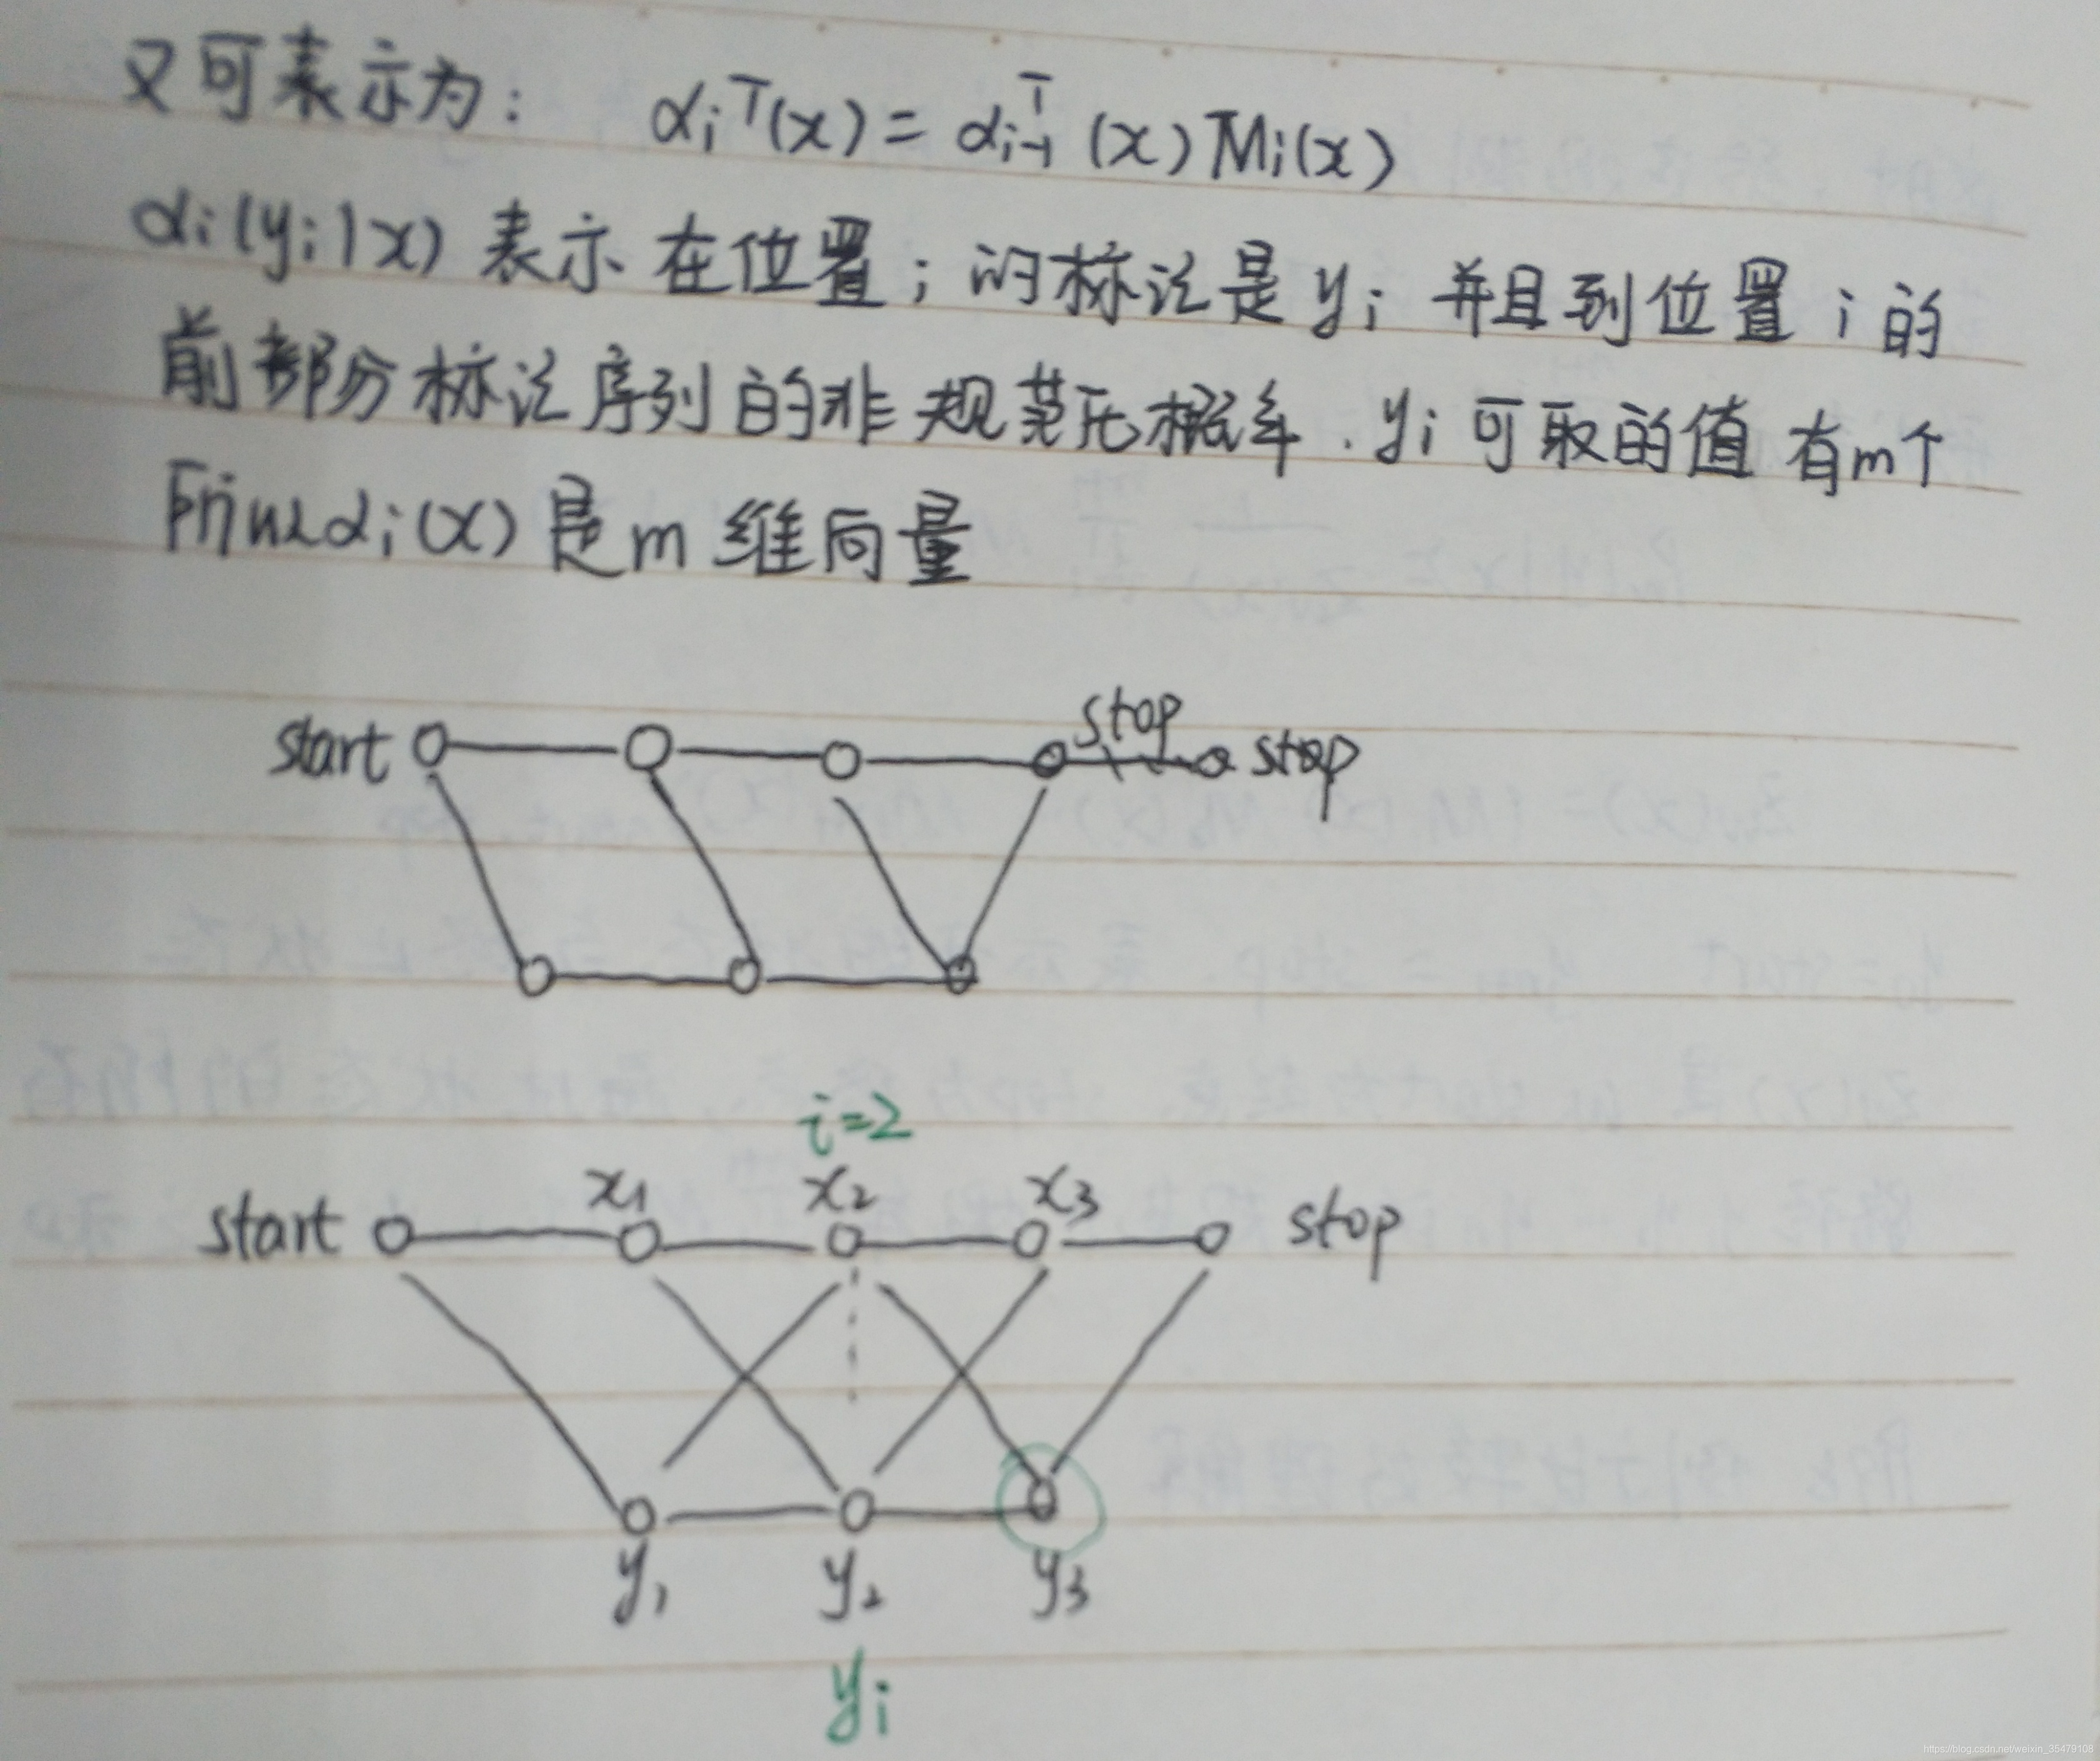 又可表示为: αiᵀ(x) = αi-1ᵀ(x) Mi(x)
αi(yi|x) 表示在位置i的标记是 yi 并且到位置 i 的
前部分标记序列的非规范化概率. yi 可取的值 有m个
所以αi(x) 是 m 维向量
start stop stop
i=2
x1 x2 x3
start stop
y1 y2 y3
yi
https://blog.csdn.net/weixin_35479108